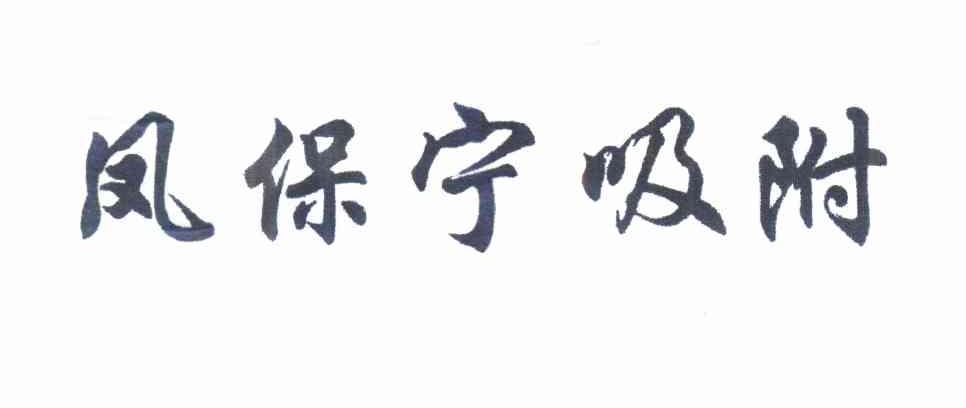 凤保宁吸附